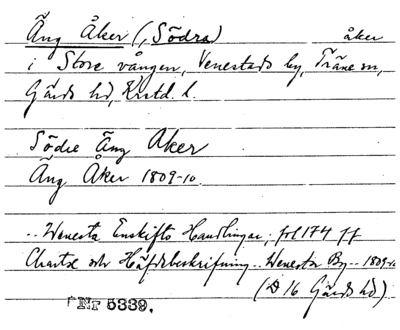 Äng Åker (, Södra) åker
i Store vången, Venestads by, Träne sn,
Gärds hd, Kristd. l.
Södre Äng Aker
Äng Åker 1809-10.
.. Wenesta Enskifts Handlingar, fol 174 ff
Chartæ och Häfdebeskrifning .. Wenesta By .. 1809-10
(D 16 Gärds hd)
Nr 5339.